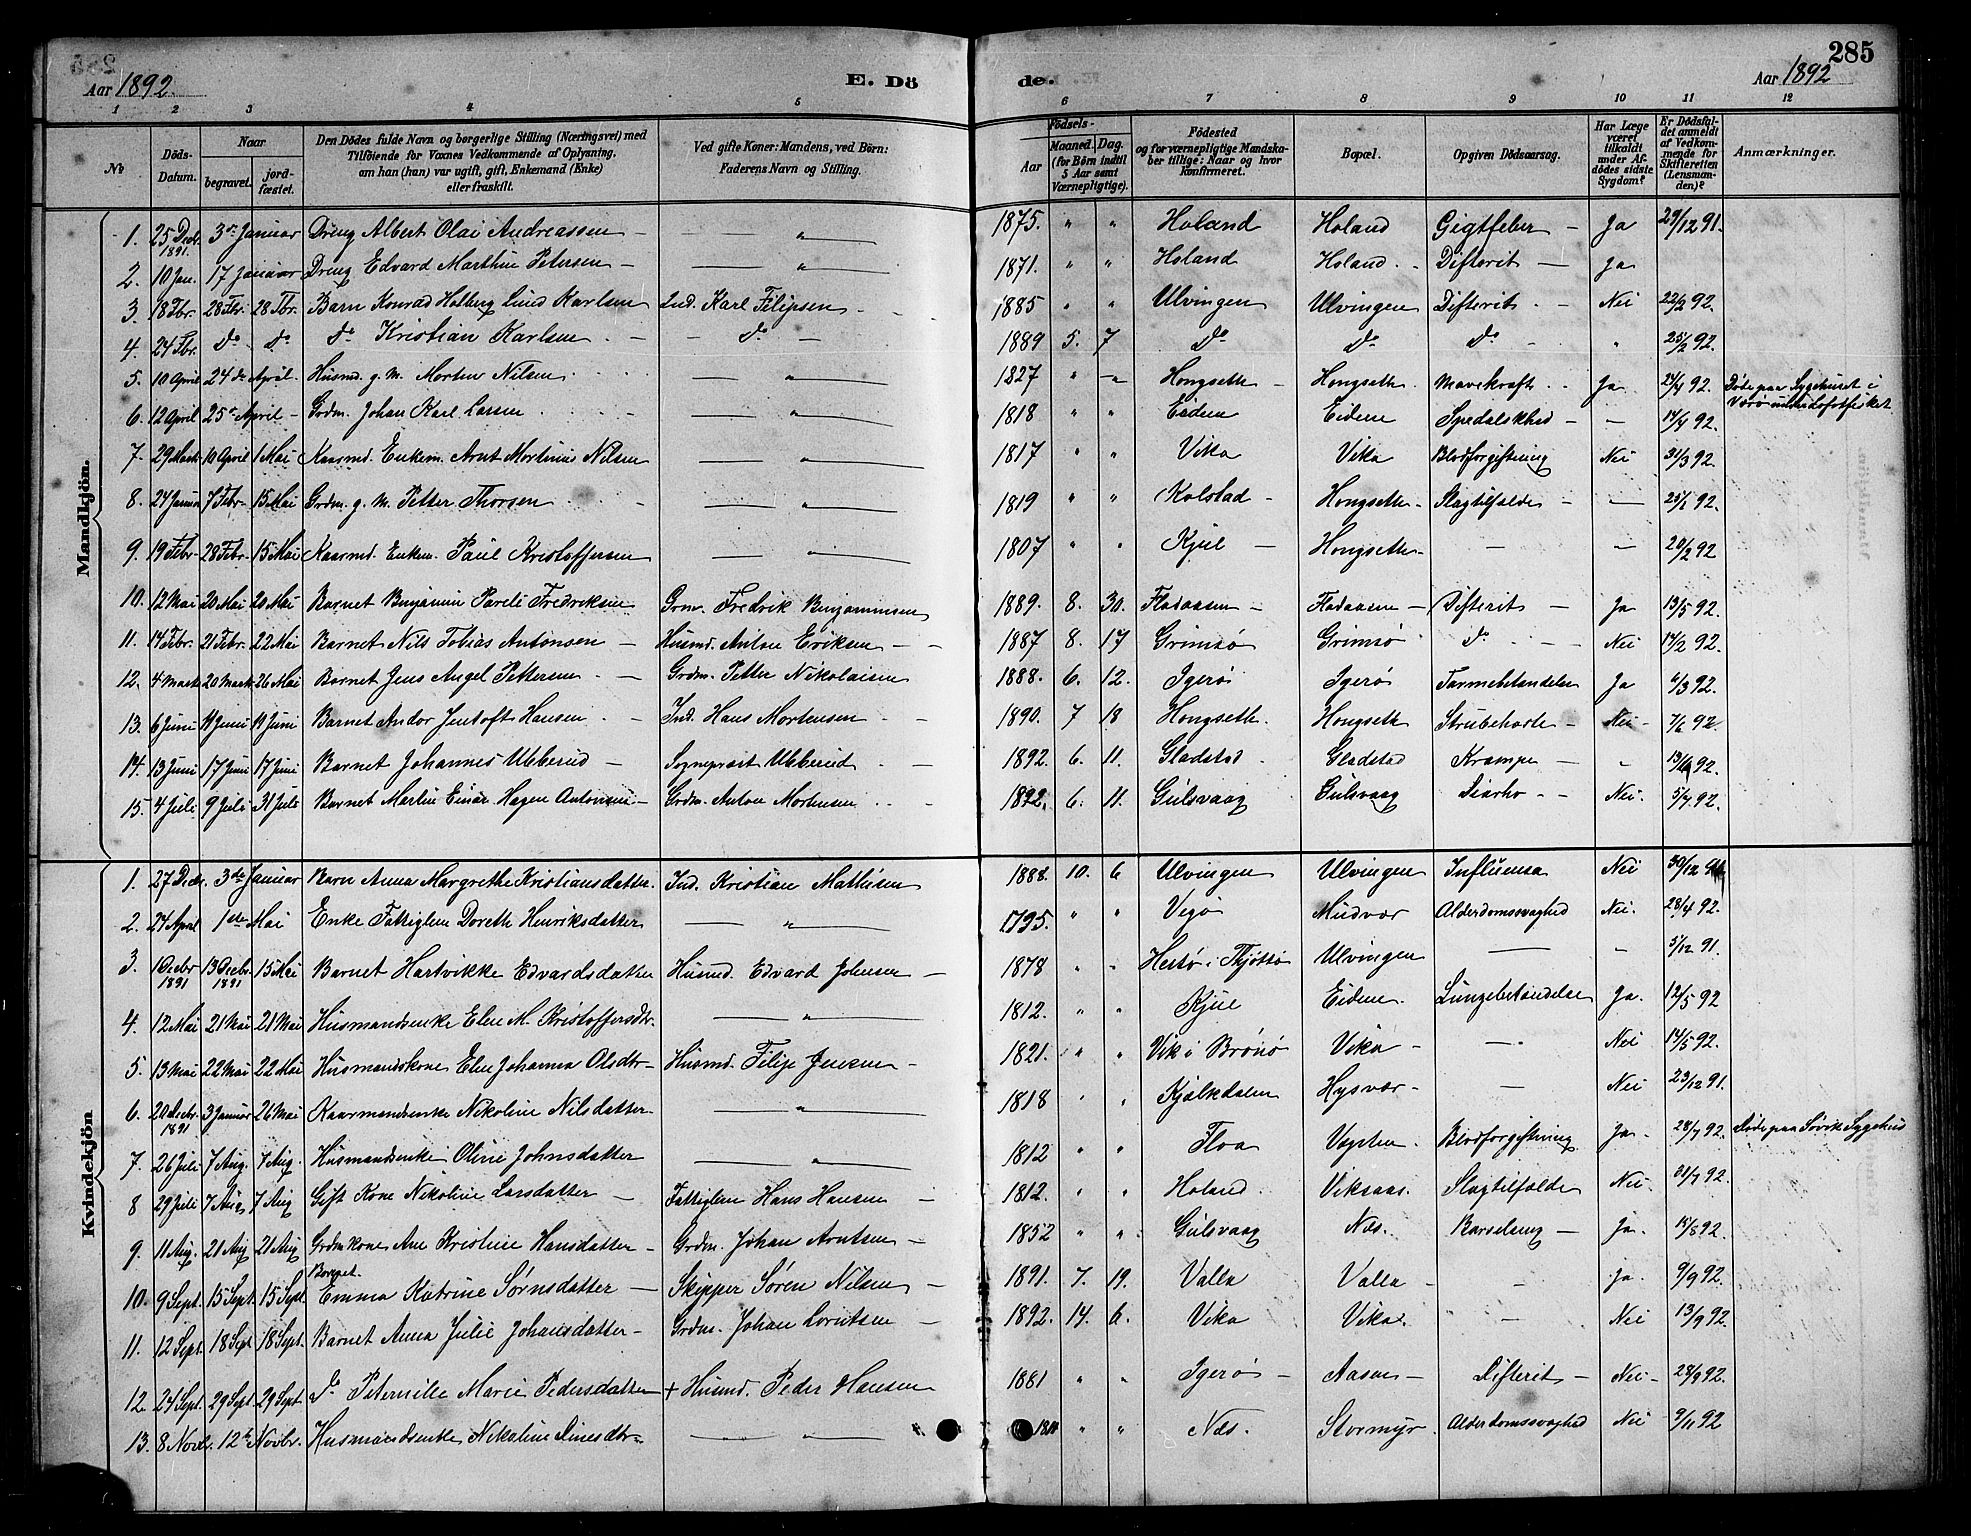 285
Aar 1892. E. Dö de. Aar 1892
1 2 3 4 5 6 7 8 9 10 11 12
No
Döds-Datum.
Naar begravet. jordfæstet.
Den Dödes fulde Navn og borgerlige Stilling (Næringsvei) med Tilföiende for Voxnes Vedkommende af Oplysning, om han (hun) var ugift, gift, Enkemand (Enke) eller fraskilt.
Ved gifte Koner: Mandens, ved Börn: Faderens Navn og Stilling.
Födsels-
Aar Maaned. Dag. (for Börn indtil 5 Aar samt Værnepligtige).
Födested og for værnepligtige Mandskaber tillige: Naar og hvor konfirmeret.
Bopæl.
Opgiven Dödsaarsag.
Har Læge været tilkaldt under Afdödes sidste Sygdom?
Er Dödsfaldet anmeldt af Vedkommende for Skifteretten (Lensmanden)?
Anmærkninger.
Mandkjön.
1. 25 Decbr. 1891. 3die Januar Dreng Albert Olai Andreassen — " — 1875. " " Holand Holand Gigtfeber — Ja 29/12 91.
2. 10 Jan. 17 Januar Dreng Edvard Marthin Petersen — " — 1871. " " Holand Holand Difterit — Ja
3. 18 Fbr. 28 Fbr. 28 Fbr. Barn Konrad Holberg Lund Karlsen Ind. Karl Filipsen 1885 " " Ulvingen Ulvingen Difterit Nei 22/2 92.
4. 24 Fbr. do do do Kristian Karlsen — do — 1889 5. 7 do do do " 25/2 92.
5. 10 April 24de April. Husmd. g. M. Morten Nilsen — " — 1827 " " Hongseth — Hongseth Mavekræft Ja 24/4 92. Döde paa Sygehuset i Værö under Lofotfisket
6. 12 April 25de April — Grdm. Johan Karl Larsen — " — 1818 " " Eidem Eidem Spedalskhed — 14/4 92.
7. 29 Marts 10 April 1 Mai Kaarmd. Enkem. Arnt Mortinus Nilsen — " — 1817 " " Vika Vika Blodforgiftning Nei 31/3 92.
8. 24 Januar 7 Febr. 15 Mai Grdm. g. M. Petter Thorsen — " — 1819 " " Kolstad — Hongseth — Slagtilfælde — — 25/1 92.
9. 19 Febr 28 Febr. 15 Mai Kaarmd. Enkem. Paul Kristoffersen — " — 1807 " " Kjul — Hongseth — — — 20/2 92
10. 12 Mai 20 Mai 20 Mai Barnet Benjamin Pareli Fredriksen Grm. Fredrik Benjaminsen 1889. 8. 30. Flodaasen — Flodaasen — Difterit — Ja 13/5 92.
11. 14 Febr. 21 Febr. 22 Mai Barnet Nils Tobias Antonsen — Husmd. Anton Eriksen — 1887 8. 17 Grimsö Grimsö do — Nei 17/2 92.
12. 4 Marts 20 Marts 26 Mai Barnet Jens Angel Pettersen — Grdm. Petter Nikolaisen 1888. 6. 12. Igerö Igerö Tarmebetændelse Ja 6/3 92.
13. 6 Juni 19 Juni 19 Juni Barnet Andor Jentoft Hansen — Ind. Hans Mortensen 1890. 7 18 Hongseth. Hongseth Strubehoste — Nei — 7/6 92.
14. 13 Juni 17 Juni 17 Juni Barnet Johannes Ulberud — Sogneprest Ulberud — 1892. 6. 11. Gladstad Gladstad Krampe — " 13/6 92.
15. 4 Juli. 9 Juli 31 Juli Barnet Martin Einar Hagen Antonsen — Grdm. Anton Mortensen 1892. 6. 11. Gulsvaag Gulsvaag Diarho — Nei. 5/7 92.
Kvindekjön
1. 27 Decbr. 3die Januar Barn Anna Margrethe Kristiansdatter. Ind. Kristian Mathisen 1888. 10. 6 Ulvingen Ulvingen Influensa Nei 30/12 91
2. 24 April 1ste Mai Enke Fattiglem Doreth Henriksdatter — " — 1795. " " Vegö Mudvær Alderdomssvaghed Nei. 28/4 92.
3. 1 Decbr 1891 13 Decbr. 1891 15 Mai Barnet Hartvikke Edvardsdatter Husmd. Edvard Johnsen — 1878 " " Hestö i Tjöttö Ulvingen — " 5/12 91.
4. 12 Mai 21 Mai 21 Mai Husmandsenke Elen M. Kristoffersdtr. — " — 1812. " " Kjul Eidem. Lungebetændelse Ja. 12/5 92
5. 13 Mai 22 Mai 22 Mai Husmandskone Elen Johanna Olsdtr — Husmd. Filip Jensen — 1821. " " Vik i Brönö Vika — — Nei 14/5 92.
6. 20 Decbr. 1891 3 Januar 26 Mai Kaarmandsenke Nikoline Nilsdatter — " — 1818 " " Kjölkdalen Hysvær — — Nei 23/12 91.
7. 26 Juli 7 Aug. 7 Aug. Husmandsenke Oline Johnsdatter — " — 1812 " " Floa Vegsten. Blodforgiftning Ja. 28/7 92. Döde paa Sövik Sygehus
8 29 Juli 7 Aug 7 Aug Gift Kone Nikoline Larsdatter — Fattiglem Hans Hansen — 1812. " " Holand. Viksaas. Slagtilfælde Nei 31/7 92.
9. 11 Aug. 21 Aug 21 Aug Grdmkone Ane Kristine Hansdatter — Grdm. Johan Arntsen — 1852 " " Gulsvaag Næs. Barselseng — Ja. 15/8 92.
10. 9 Sept. 15 Sept. 15 Sept. Barnet. Emma Katrine Sørnsdatter — Skipper Sören Nilsen — 1891. 7. 19. Valla Valla — — Ja. 9/9 92.
11. 12 Sept. 18 Sept 18 Sept. Barnet Anna Julie Johansdatter — Grdm. Johan Lorntsen — 1892. 14. 6. Vika Vika. — Nei 13/9 92.
12. 24 Sept. 29 Sept 29 Sept do Peternille Marie Pedersdatter + Husmd. Peder Hansen 1881 " " Igerö — Aasen — Difterit — Nei — 28/9 92.
13. 8 Novbr. 12te Novbr. Husmandsenke Nikoline Dinesdtr — " — " " Næs. Stormyr. Alderdomssvaghed Nei 9/11 92